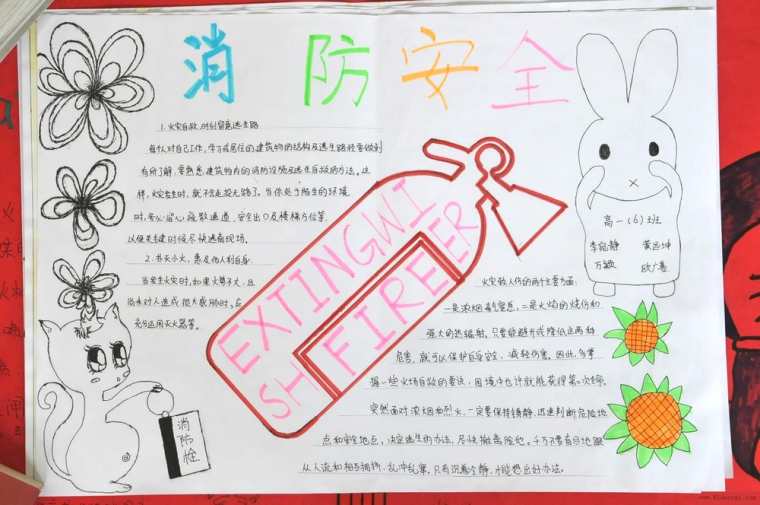 消防安全
1. 火灾自救,时刻留意逃生路
每个人对自己工作,学习或居住的建筑物的结构及逃生路径要做到
有所了解,要熟悉建筑物内的消防设施及逃生自救的方法。这
样,火灾发生时,就不会走投无路了。当你处于陌生的环境
时,务必留心疏散通道,安全出口及楼梯方位等,
以便关键时候尽快逃离现场。
2. 扑灭小火,惠及他人利自身
当发生火灾时,如果火势不大,且
尚未对人造成很大威胁时,应
充分运用灭火器等。
EXTINGWI
SH FIREER
高一(6)班
李宛静
万颖
消防栓
火灾致人伤的两个主要方面:
一是浓烟毒气窒息,二是火焰的烧伤和
强大的热辐射。只要能避开或降低这两种
危害,就可以保护自身安全,减轻伤害。因此,多掌
握一些火场自救的要诀,困境中也许就能获得第二次生命。
突然面对浓烟和烈火,一定要保持镇静,迅速判断危险地
点和安全地点,决定逃生的办法,尽快撤离险地。千万不要盲目地跟
从人流和相互拥挤、乱冲乱窜。只有沉着冷静,才能想出好办法。